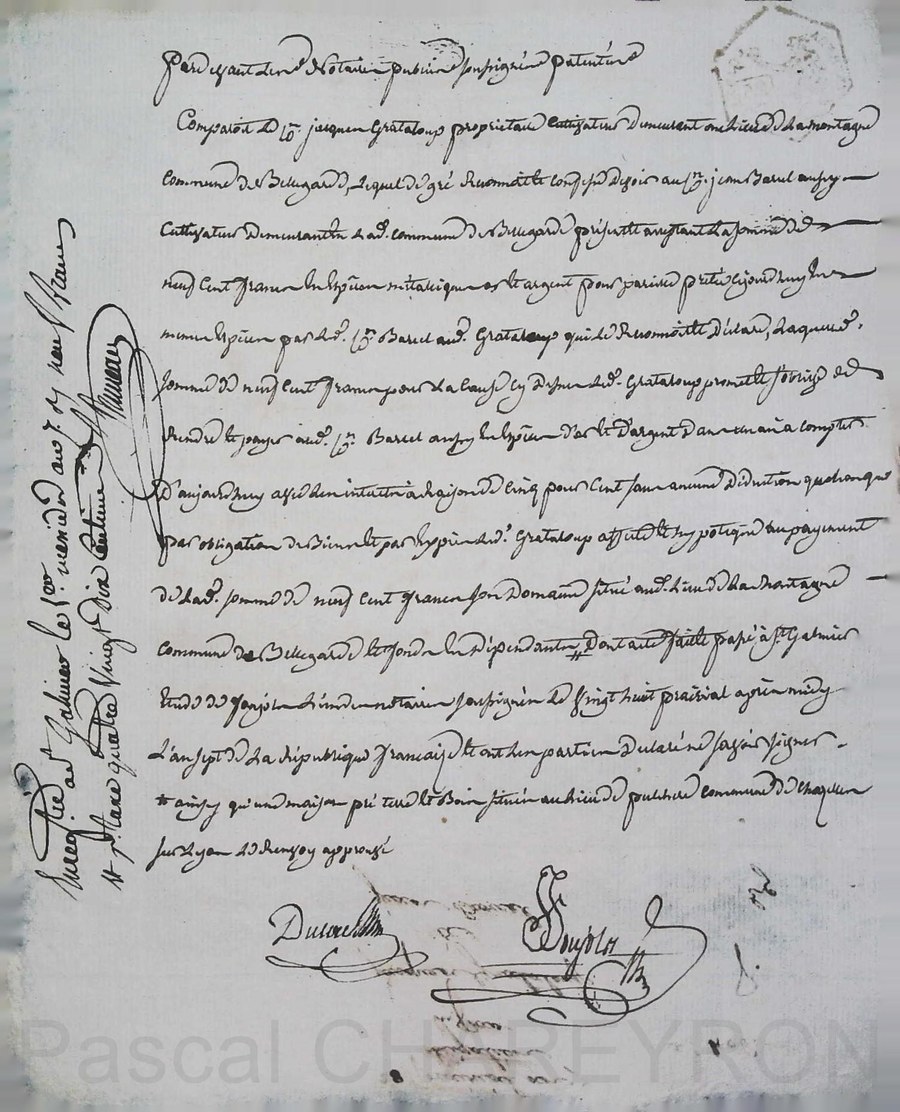 Pardevant Les Notaires publics soussignés patentés
Comparoit Le Cn. jacques Grataloup propriétaire Cultivateur Demeurant au Lieu de La montagne
Commune de Bellegarde, Lequel de gré Reconnoit et Confesse Devoir au Cn. jean Barcel aussy
Cultivateur Demeurant en Lad. commune de Bellegarde présent et acceptant La somme de
neuf Cent francs En Espèces métalliques or et argent pour pareille prêtée Cejourdhuy En
memes Espèces par Led. Cn. Barcel aud. Grataloup qui Le Reconnoit et Déclare, Laquelle
somme de neuf Cent francs pour La Cause Cy Dessus Led. Grataloup promet et s'oblige de
Rendre et payer aud. Cn. Barcel aussy En Espèces d'or et D'argent Dans un an à compter
D'aujourdhuy avec Les intérêts à Raison de Cinq pour Cent sans aucune Déduction quelconque
par obligation de Biens et par Exprès Led. Grataloup affecte et hypotèque au payement
de Lad. somme de neuf Cent francs son Domaine situé aud. Lieu de La Montagne
Commune de Bellegarde et fonds En Dépendants # Dont acte fait et passé à St. Galmier
Etude de Ponjolas L'un des notaires soussignés Le vingt huit prairial après midy
L'an sept de La République française et ont Les parties Déclaré ne savoir signer
# ainsy qu'une maison pré terre et Bois situés au Lieu de commune de Chazelles
sur Lyon Le Renvoy approuvé
Enregistré à St. Galmier le 1er. messidor an 7. Rçu neuf francs
et pr. taxe quatre vingt dix centimes
Pascal CHAREYRON